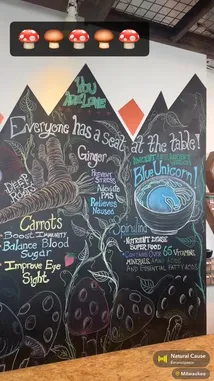 You
Are Love
Everyone has a seat at the table!
Ginger
Prevent
Stress
Alleviate
Pain
Relieves
Nausea
Blue Unicorn!
Deep
Roots
Carrots
• Boost Immunity
• Balance Blood
Sugar
• Improve Eye
Sight
Spirulina
• Nutrient Dense
Super Food
• Contains Over 65 Vitamins,
Minerals,
and Essential Fatty Acids
Natural Cause
Milwaukee